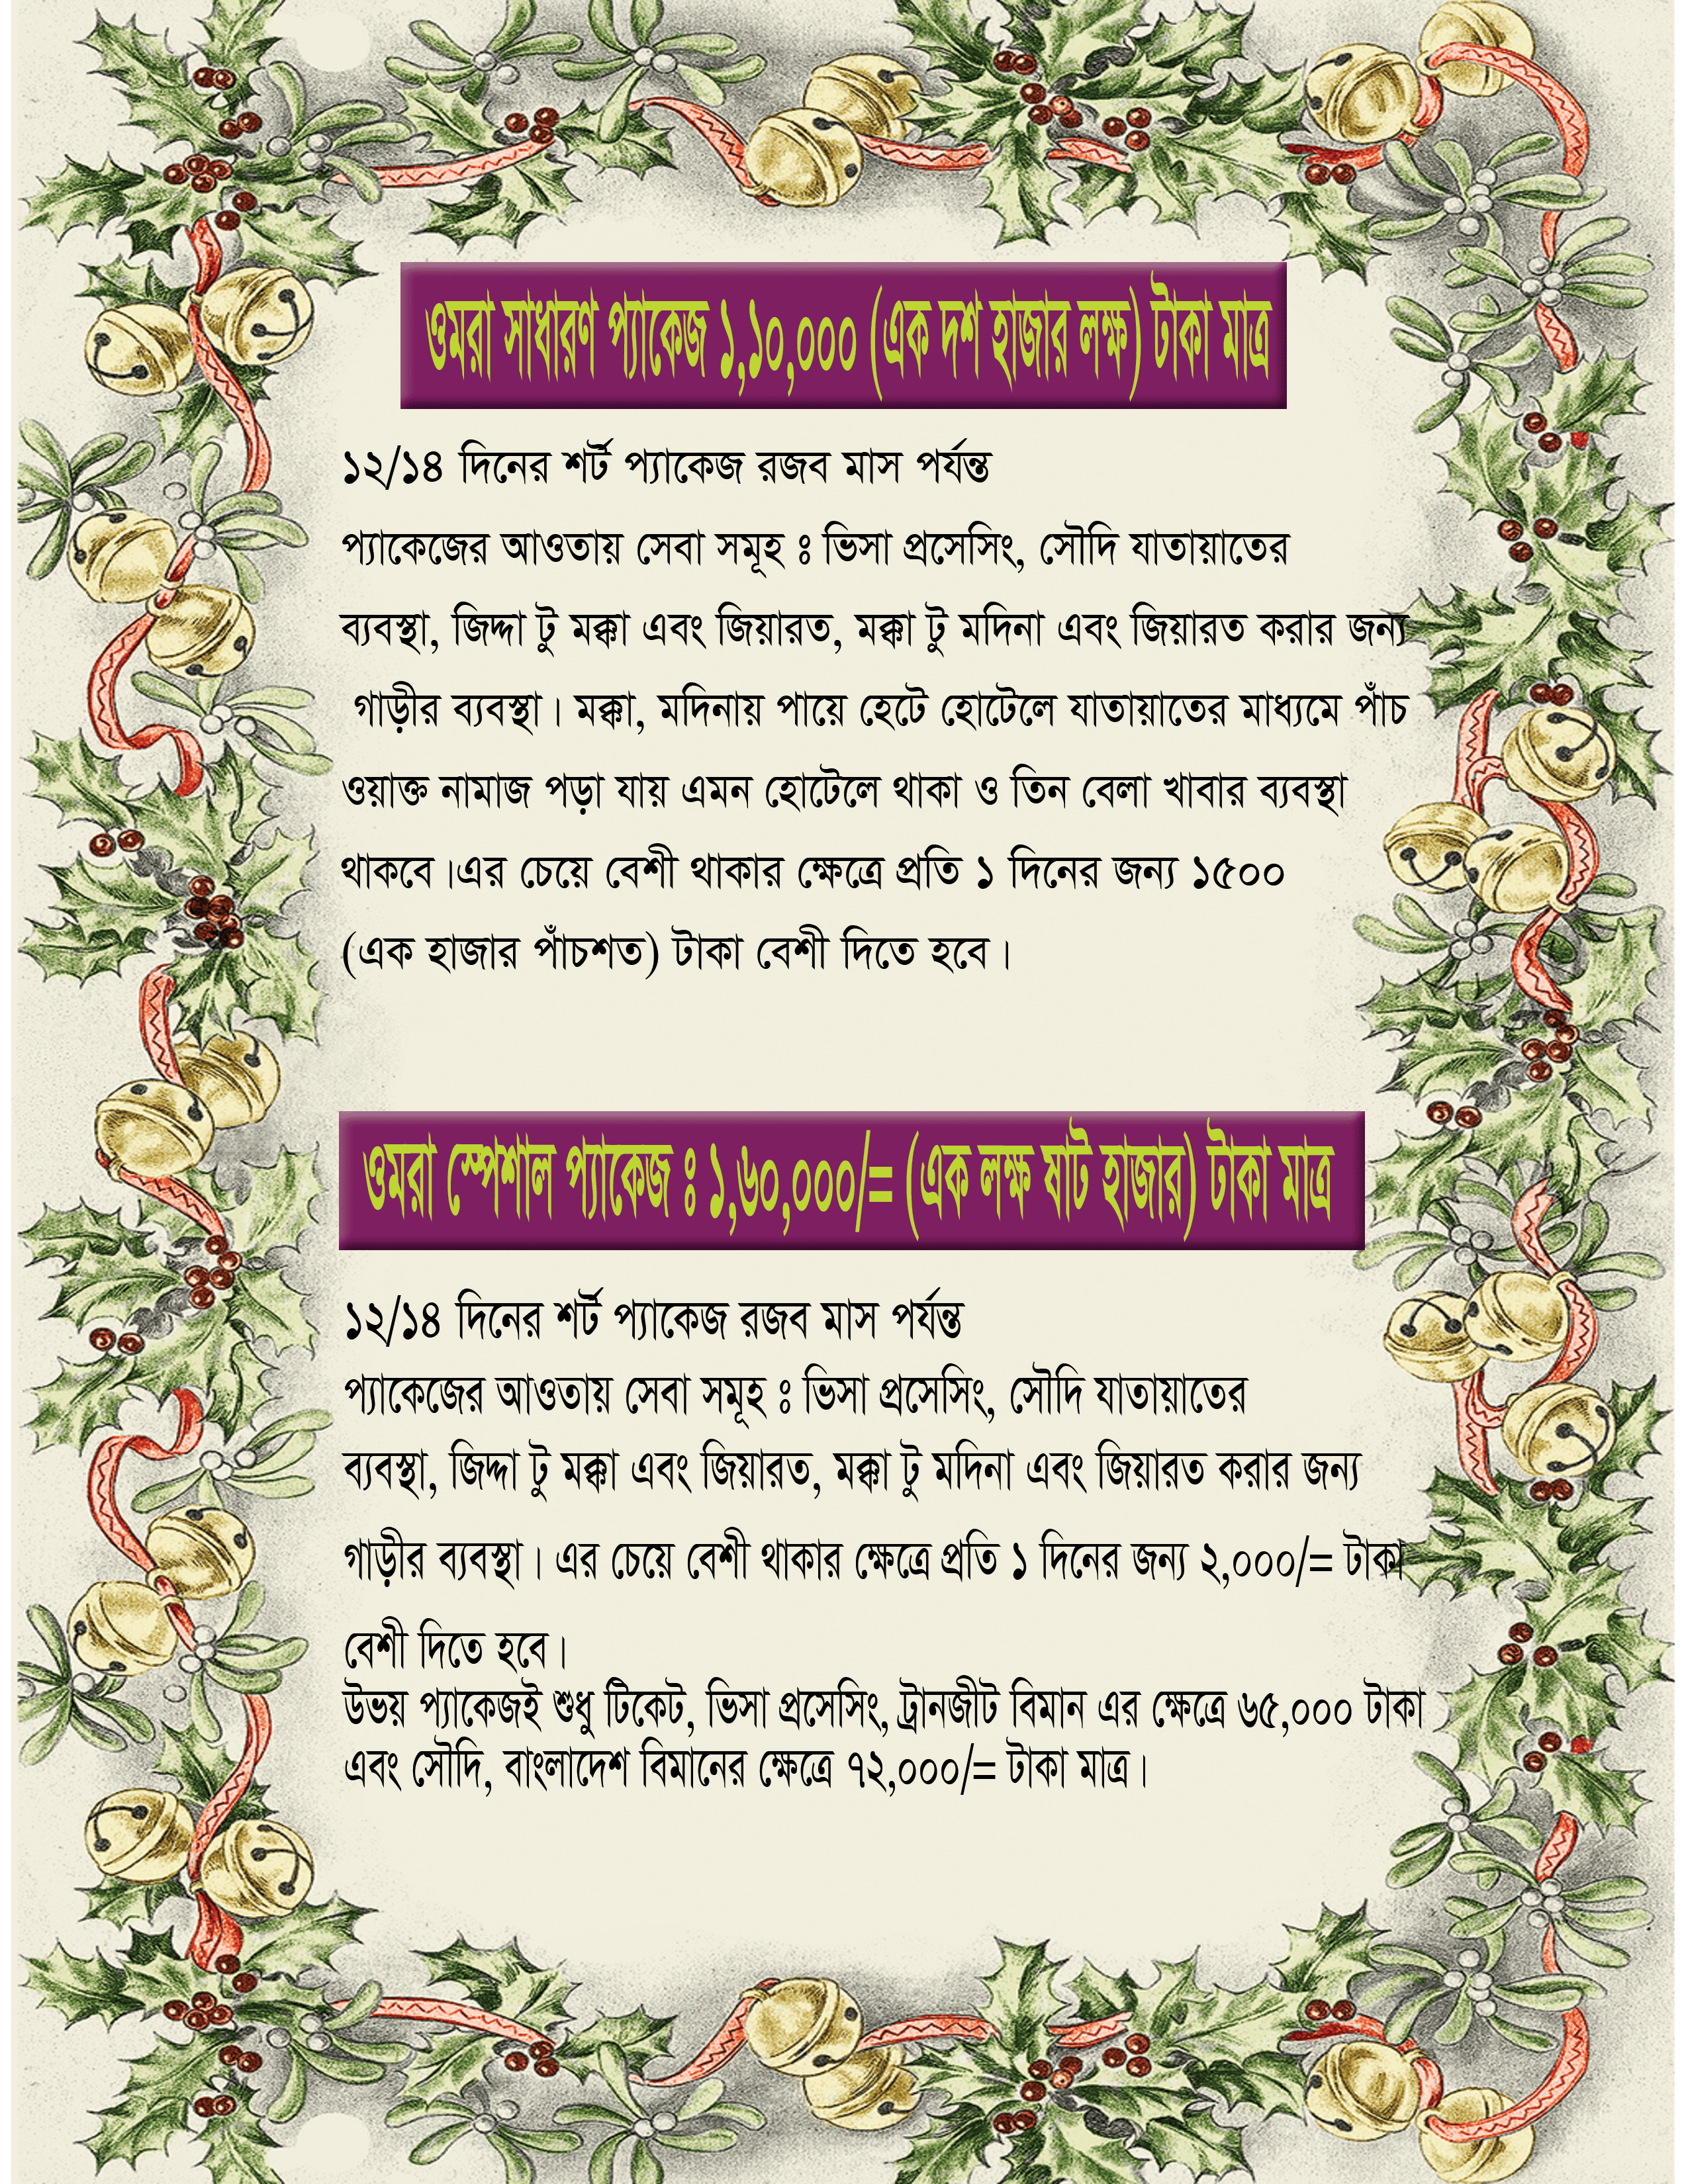 ওমরা সাধারণ প্যাকেজ ১,১০,০০০ (এক দশ হাজার লক্ষ) টাকা মাত্র
১২/১৪ দিনের শর্ট প্যাকেজ রজব মাস পর্যন্ত
প্যাকেজের আওতায় সেবা সমূহ ঃ ভিসা প্রসেসিং, সৌদি যাতায়াতের
ব্যবস্থা, জিদ্দা টু মক্কা এবং জিয়ারত, মক্কা টু মদিনা এবং জিয়ারত করার জন্য
গাড়ীর ব্যবস্থা। মক্কা, মদিনায় পায়ে হেটে হোটেলে যাতায়াতের মাধ্যমে পাঁচ
ওয়াক্ত নামাজ পড়া যায় এমন হোটেলে থাকা ও তিন বেলা খাবার ব্যবস্থা
থাকবে।এর চেয়ে বেশী থাকার ক্ষেত্রে প্রতি ১ দিনের জন্য ১৫০০
(এক হাজার পাঁচশত) টাকা বেশী দিতে হবে।
ওমরা স্পেশাল প্যাকেজ ঃ ১,৬০,০০০/= (এক লক্ষ ষাট হাজার) টাকা মাত্র
১২/১৪ দিনের শর্ট প্যাকেজ রজব মাস পর্যন্ত
প্যাকেজের আওতায় সেবা সমূহ ঃ ভিসা প্রসেসিং, সৌদি যাতায়াতের
ব্যবস্থা, জিদ্দা টু মক্কা এবং জিয়ারত, মক্কা টু মদিনা এবং জিয়ারত করার জন্য
গাড়ীর ব্যবস্থা। এর চেয়ে বেশী থাকার ক্ষেত্রে প্রতি ১ দিনের জন্য ২,০০০/= টাকা
বেশী দিতে হবে।
উভয় প্যাকেজই শুধু টিকেট, ভিসা প্রসেসিং, ট্রানজীট বিমান এর ক্ষেত্রে ৬৫,০০০ টাকা
এবং সৌদি, বাংলাদেশ বিমানের ক্ষেত্রে ৭২,০০০/= টাকা মাত্র।